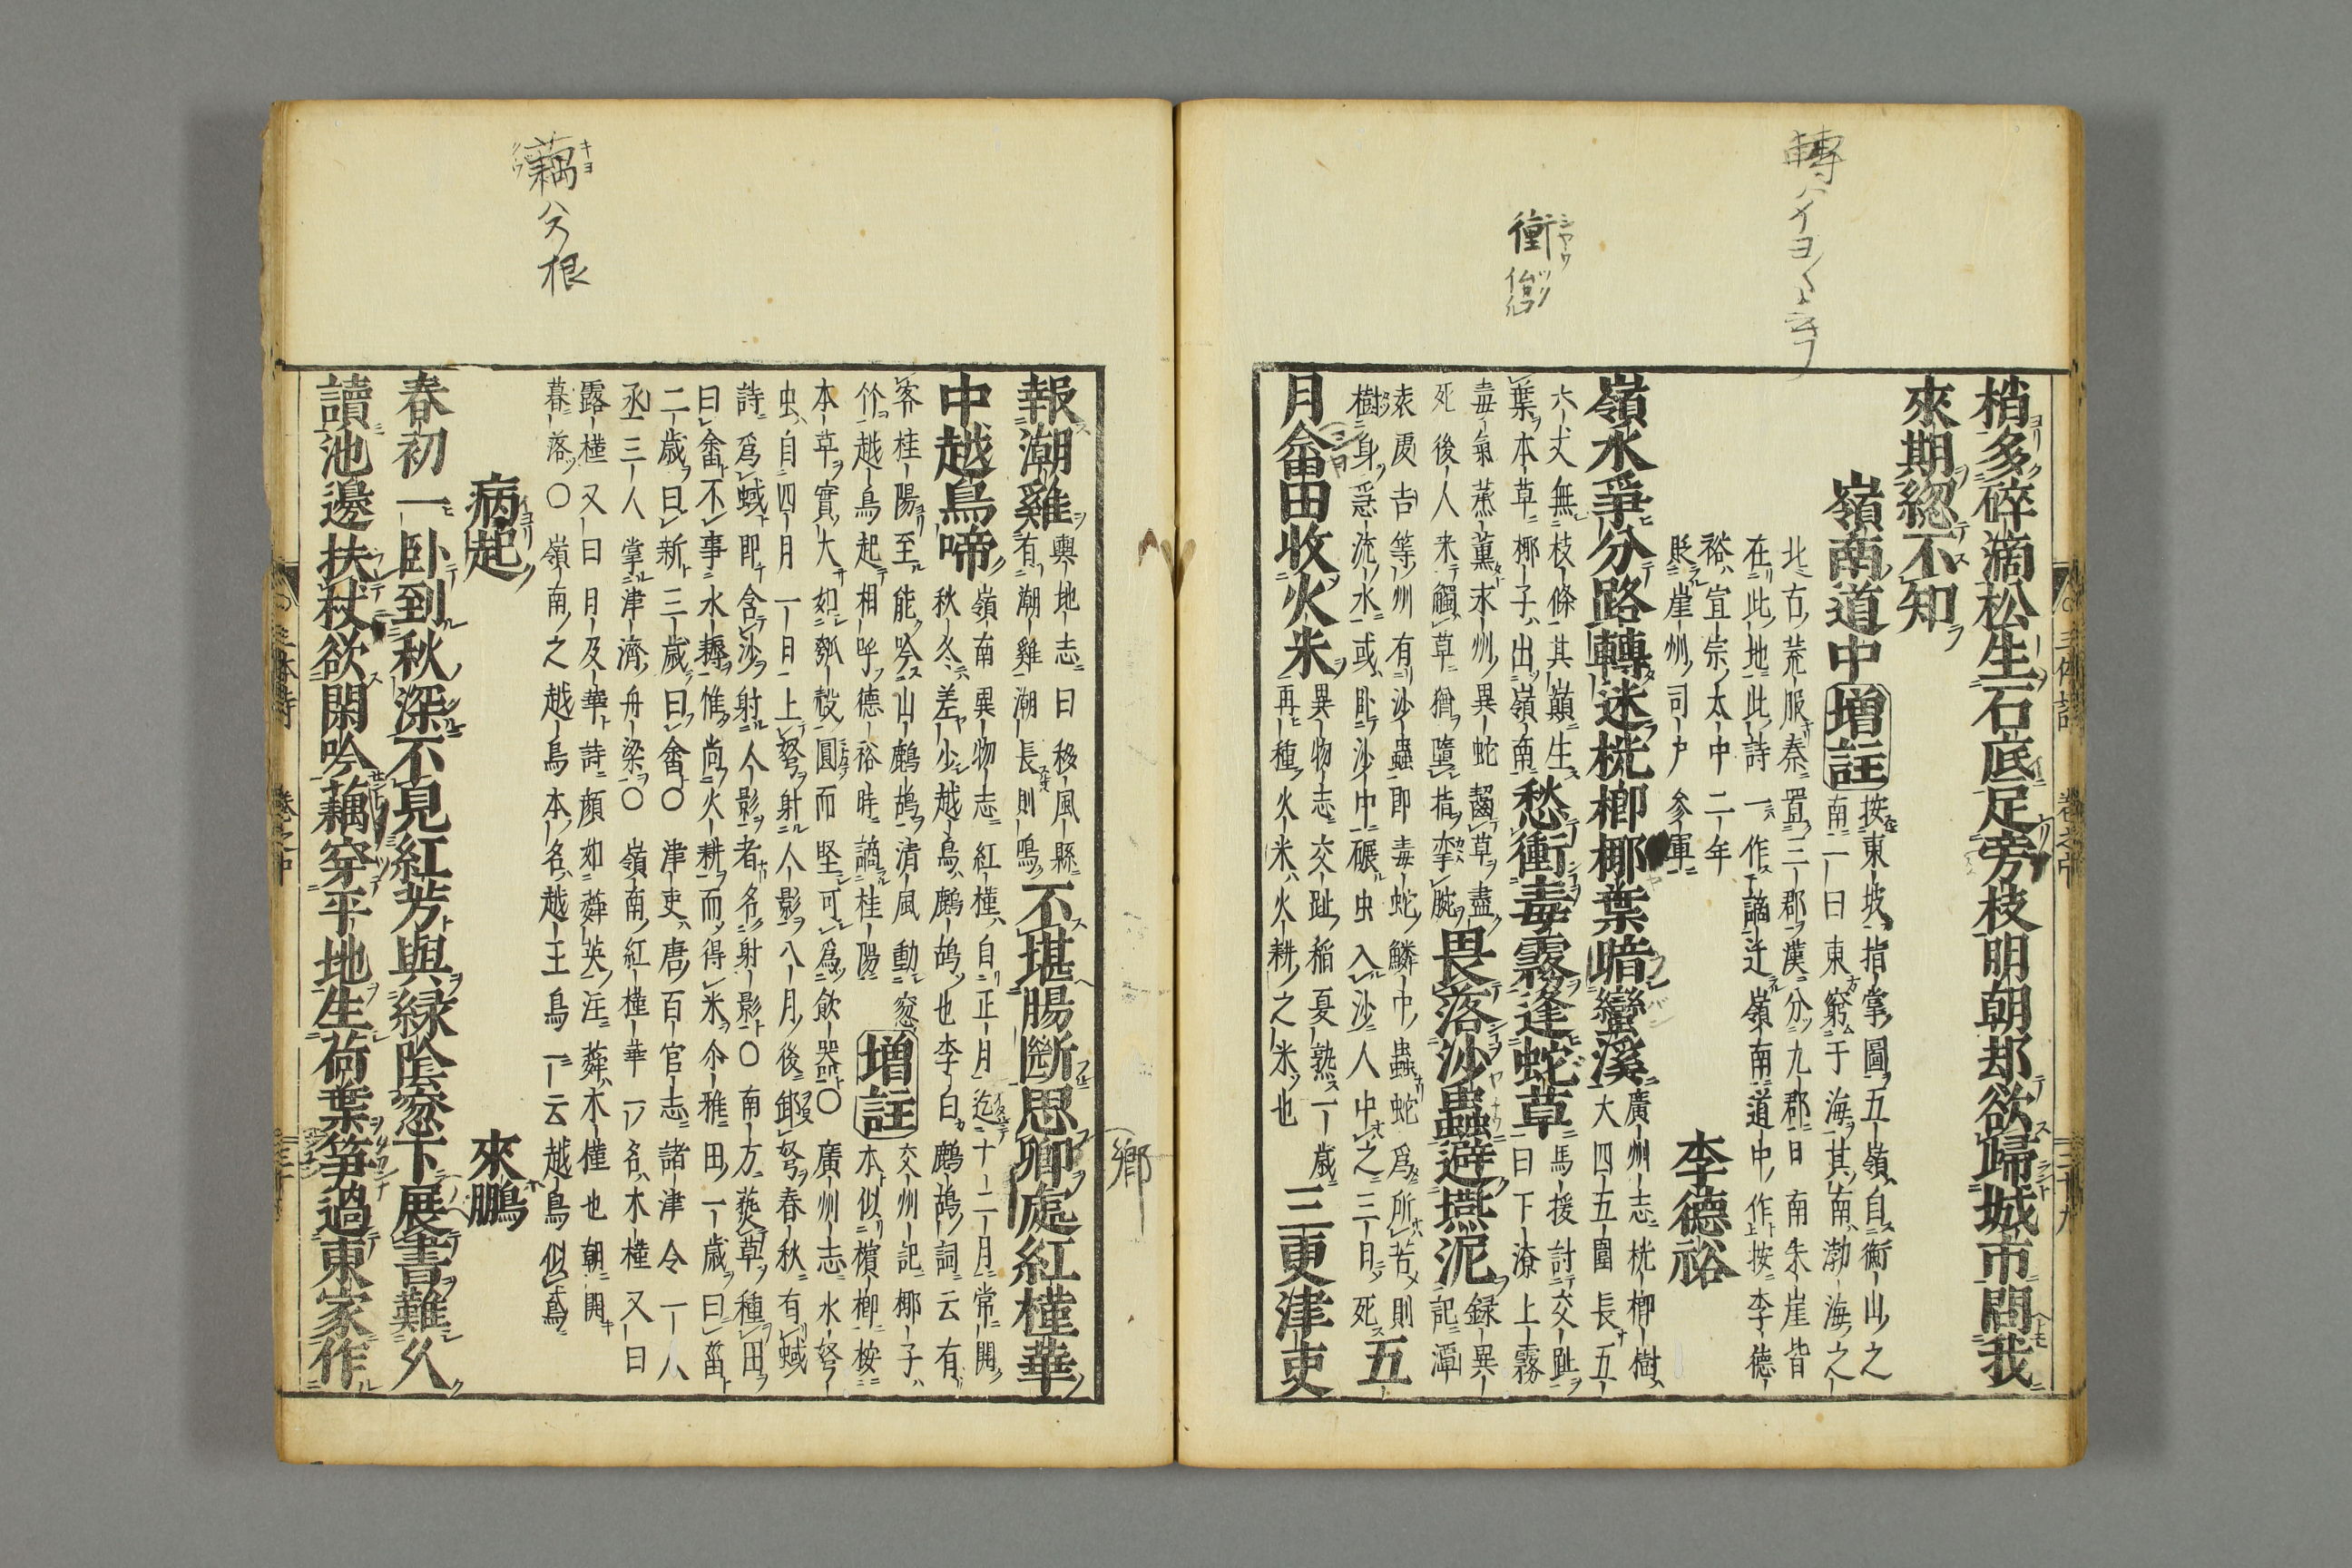 梢多碎滴松生石底足旁枝明朝却欲歸城市問我
來期總不知
嶺南道中 增註 按東坡指掌圖五嶺自衡山之
南一曰東窮于海其南渤海之
北古荒服秦置三郡漢分九郡日南朱崖皆
在此地此詩一作謫迁嶺南道中作按李德
裕宣宗太中二年
貶崖州司戸參軍
李德裕
嶺水爭分路轉迷桄榔椰葉暗蠻溪 廣州志桄榔樹
大四五圍長五
六丈無枝條其巔生
葉本草椰子出嶺南
愁衝毒霧逢蛇草 馬援討交趾
曰下潦上霧
毒氣蒸薰末州異蛇齧草盡
死後人来觸草猶墮指攣腕
畏落沙蟲避燕泥 録異
記潭
袁虔吉等州有沙蟲即毒蛇鱗中蟲蛇爲所苦則
樹身急流水或卧沙中碾虫入沙人中之三日死
五
月畬田收火米 異物志交趾稲夏熟一歳
再種火米火耕之米也
三更津吏
報潮雞 輿地志曰移風縣
有潮雞潮長則鳴
不堪腸斷思卿處紅槿華
中越鳥啼 嶺南異物志紅槿自正月迄十二月常開
秋冬差少越鳥鷓鴣也李白鷓鴣詞云有
客桂陽至能吟山鷓鴣清風動窓
竹越鳥起相呼德裕時謫桂陽
增註 交州記椰子
本似檳榔桉
本草實大如瓠殼圓而堅可爲飲器〇廣州志水弩
虫自四月一日上弩射人影八月後卸弩春秋有蜮
詩爲蜮即含沙射人影者名射影〇南方𤆥草種田
曰畬不事水耨惟尚火耕而得米尒雅田一歳曰菑
二歳曰新三歳曰畬〇津吏唐百官志諸津令一人
丞三人掌津濟舟梁〇嶺南紅槿華一名木槿又曰
露槿又曰日及華詩顔如蕣英注蕣木槿也朝開
暮落〇嶺南之越鳥本名越王鳥一云越鳥似鳶
病起
來鵬
春初一卧到秋深不見紅芳與緑陰窓下展書難久
讀池邊扶杖欲閑吟藕穿平地生荷葉笋過東家作
三体詩 巻之中 三十九
轉ハ
衝
鄉
藕ハ根